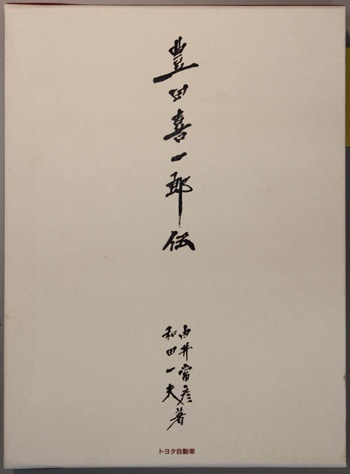 豊田喜一郎伝
和田一夫
由井常彦著
トヨタ自動車